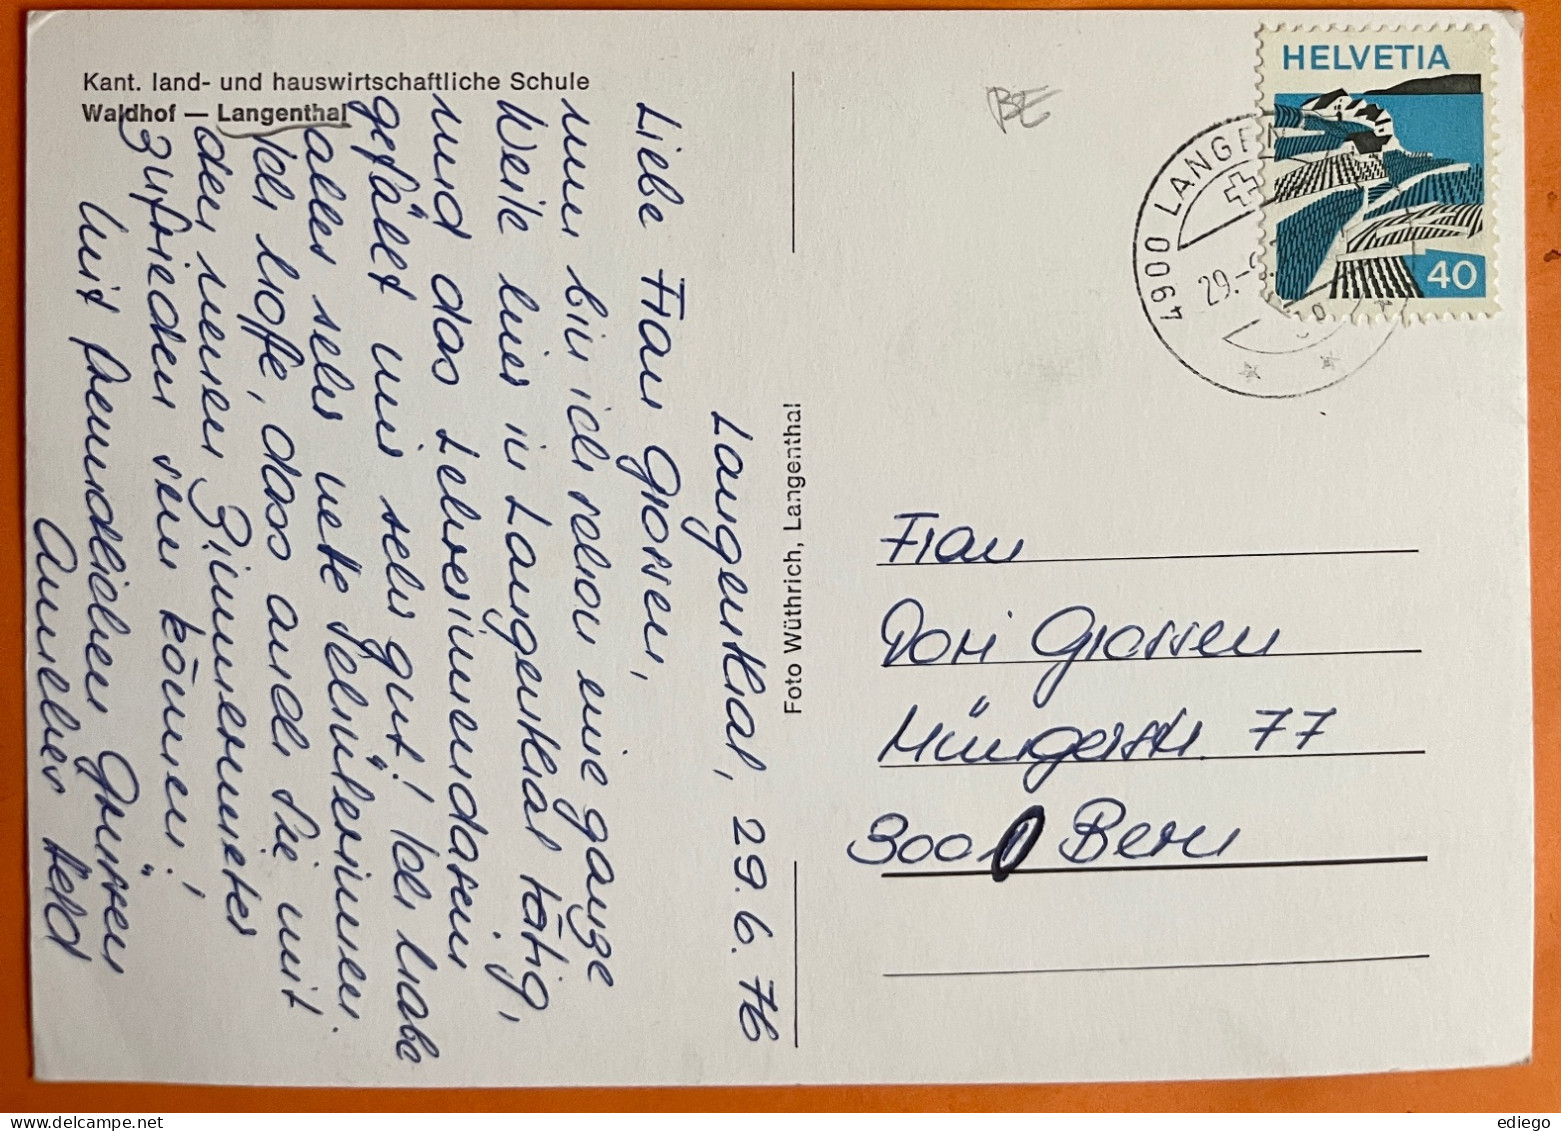 Kant. land- und hauswirtschaftliche Schule
Waldhof — Langenthal
Langenthal, 29.6.76
Liebe Frau Grossen,
nun bin ich schon eine ganze
Weile hier in Langenthal tätig,
und das Lehrerinnendasein
gefällt mir sehr gut! Ich habe
alles sehr nette Schülerinnen.
Ich hoffe, dass auch Sie mit
der neuen Zimmermieter
zufrieden sein können!
Mit freundlichen Grüssen
Foto Wüthrich, Langenthal
BE
HELVETIA
40
4900 LANGEN
29.-
Frau
Dori Grossen
Müngerstr. 77
3001 Bern
ediego